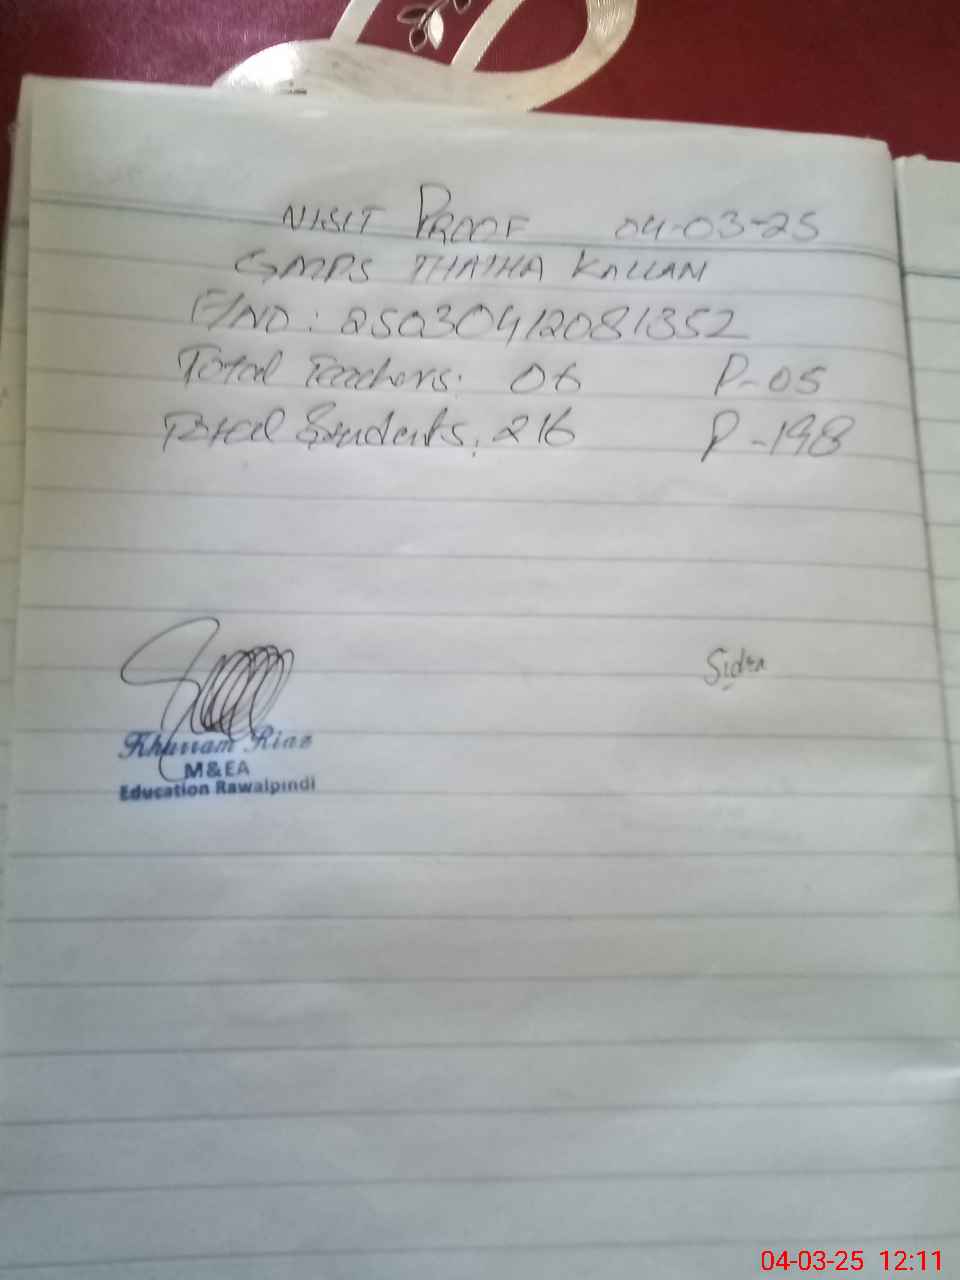 VISIT PROOF 04-03-25
GMPS THATHA KALLAN
F/NO: 25030412081352
Total Teachers: 06 P-05
Total Students: 216 P-198
Sidra
Khurram Riaz
M&EA
Education Rawalpindi
04-03-25 12:11